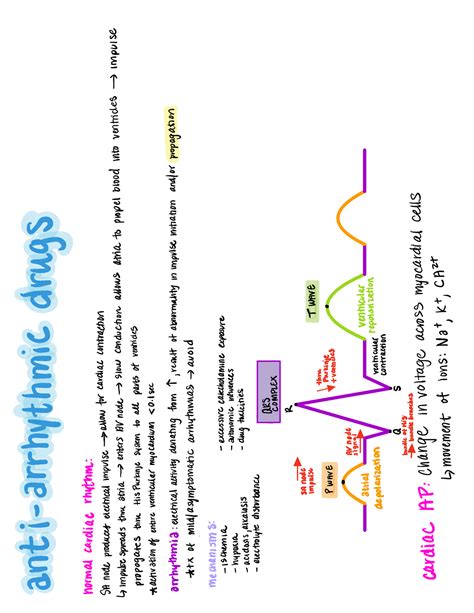 anti-arrhythmic drugs
normal cardiac rhythm:
SA node produces electrical impulse → allow for cardiac contraction
↳ impulse spreads thru atria → enters AV node → slow conduction: allows atria to propel blood into ventricles → impulse
propagates thru His Purkinje system to all parts of ventricles
*activation of entire ventricular myocardium <0.1 sec
arrhythmia: electrical activity deviating from ↑, result of abnormality in impulse initiation and/or propagation
*tx of mild/asymptomatic arrhythmias → avoid
mechanisms:
- ischemia
- hypoxia
- acidosis, alkalosis
- electrolyte disturbance
- excessive catecholamine exposure
- autonomic influences
- drug toxicities
SA node
impulse
P WAVE
atrial
depolarization
AV node
signal
QRS
COMPLEX
R
Q
S
bundle of His
bundle branches
thru
Purkinje
→ ventricles
ventricular
contraction
T WAVE
ventricular
repolarization
cardiac AP: Change in voltage across myocardial cells
↳ movement of ions: Na⁺, K⁺, CA²⁺